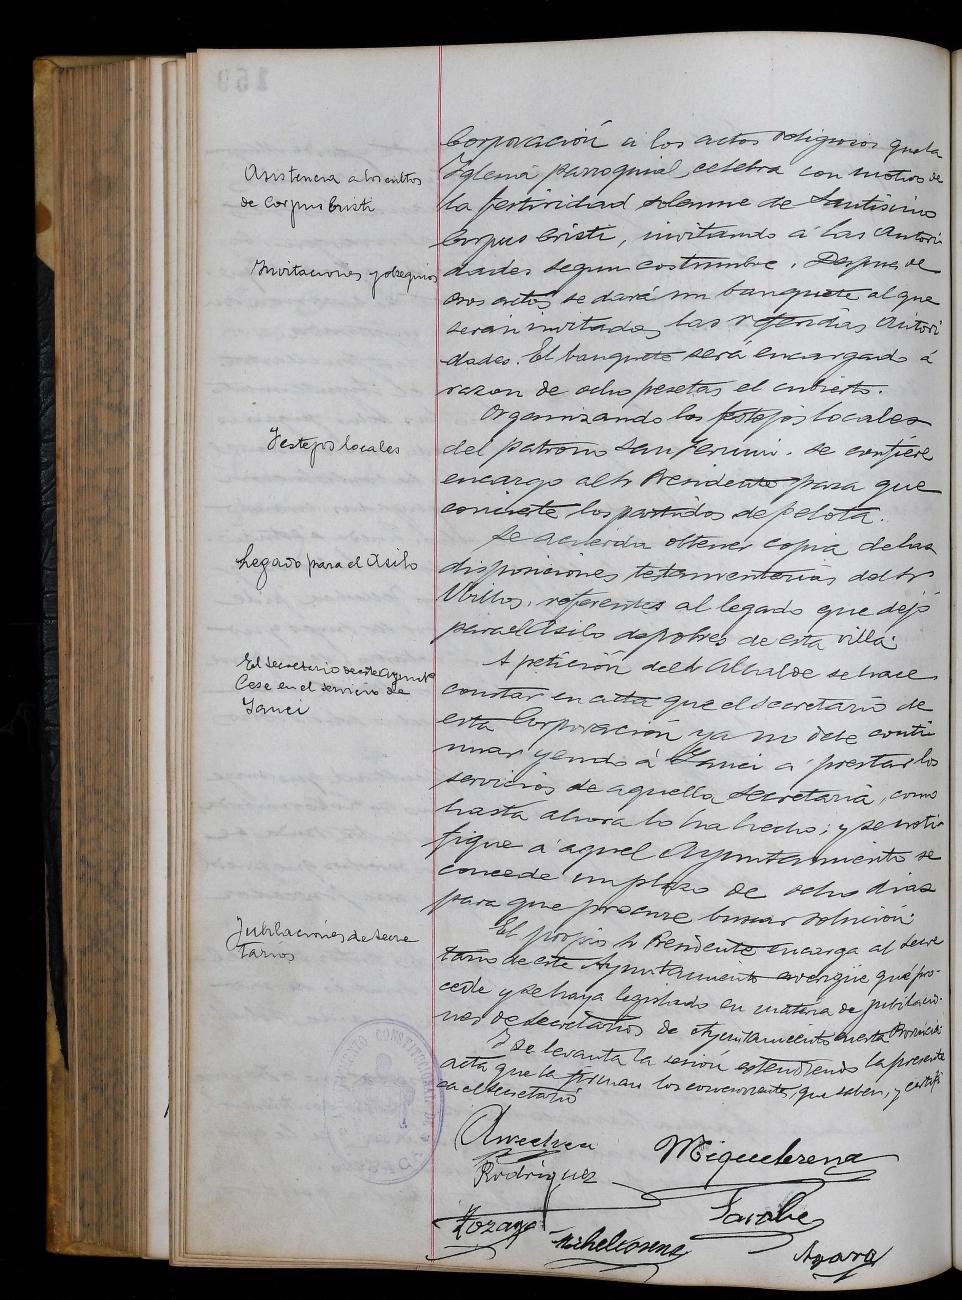 159
Corporación á los actos religiosos que la
Asistencia a los cultos
de Corpus Cristi
Iglesia parroquial celebra con motivo de
la festividad solemne de Santisimo
Corpus Cristi, invitando á las Autori
Invitaciones y obsequios
dades segun costumbre. Despues de
esos actos se dará un banquete al que
serán invitados las referidas Autori
dades. El banquete será encargado á
razon de ocho pesetas el cubierto.
Organizando los festejos locales
Festejos locales
del patron San Fermin. se confiere
encargo al Sr Presidente para que
concierte los partidos de pelota.
Se acuerda obtener copia de las
Legado para el Asilo
disposiciones testamentarias del Sr
referentes al legado que dejó
para el Asilo de pobres de esta villa.
A petición del Sr Alcalde se hace
El secretario de este Ayuntto
Cese en el servicio de
Yanci
constar en acta que el secretario de
esta Corporación ya no debe conti
nuar yendo á Yanci a prestar los
servicios de aquella secretaria, como
hasta ahora lo ha hecho; y se noti
fique á aquel Ayuntamiento se
concede un plazo de ocho dias
para que procure buscar solución.
El propio Sr Presidente encarga al secre
Jubilaciones de Secre
tarios
tario de este Ayuntamiento averigüe qué pro-
cede y se haya legislado en materia de jubilacio-
nes de secretarios de Ayuntamiento en esta Provincia.
Y se levanta la sesión extendiendo la presente
acta que la firman los concurrentes, que saben, y certifi
ca el secretario
AYUNTAMIENTO CONSTITUCIONAL DE
Rodriguez
Miquelerena
Tarabe
Zozaya
Michelcorena
Apara